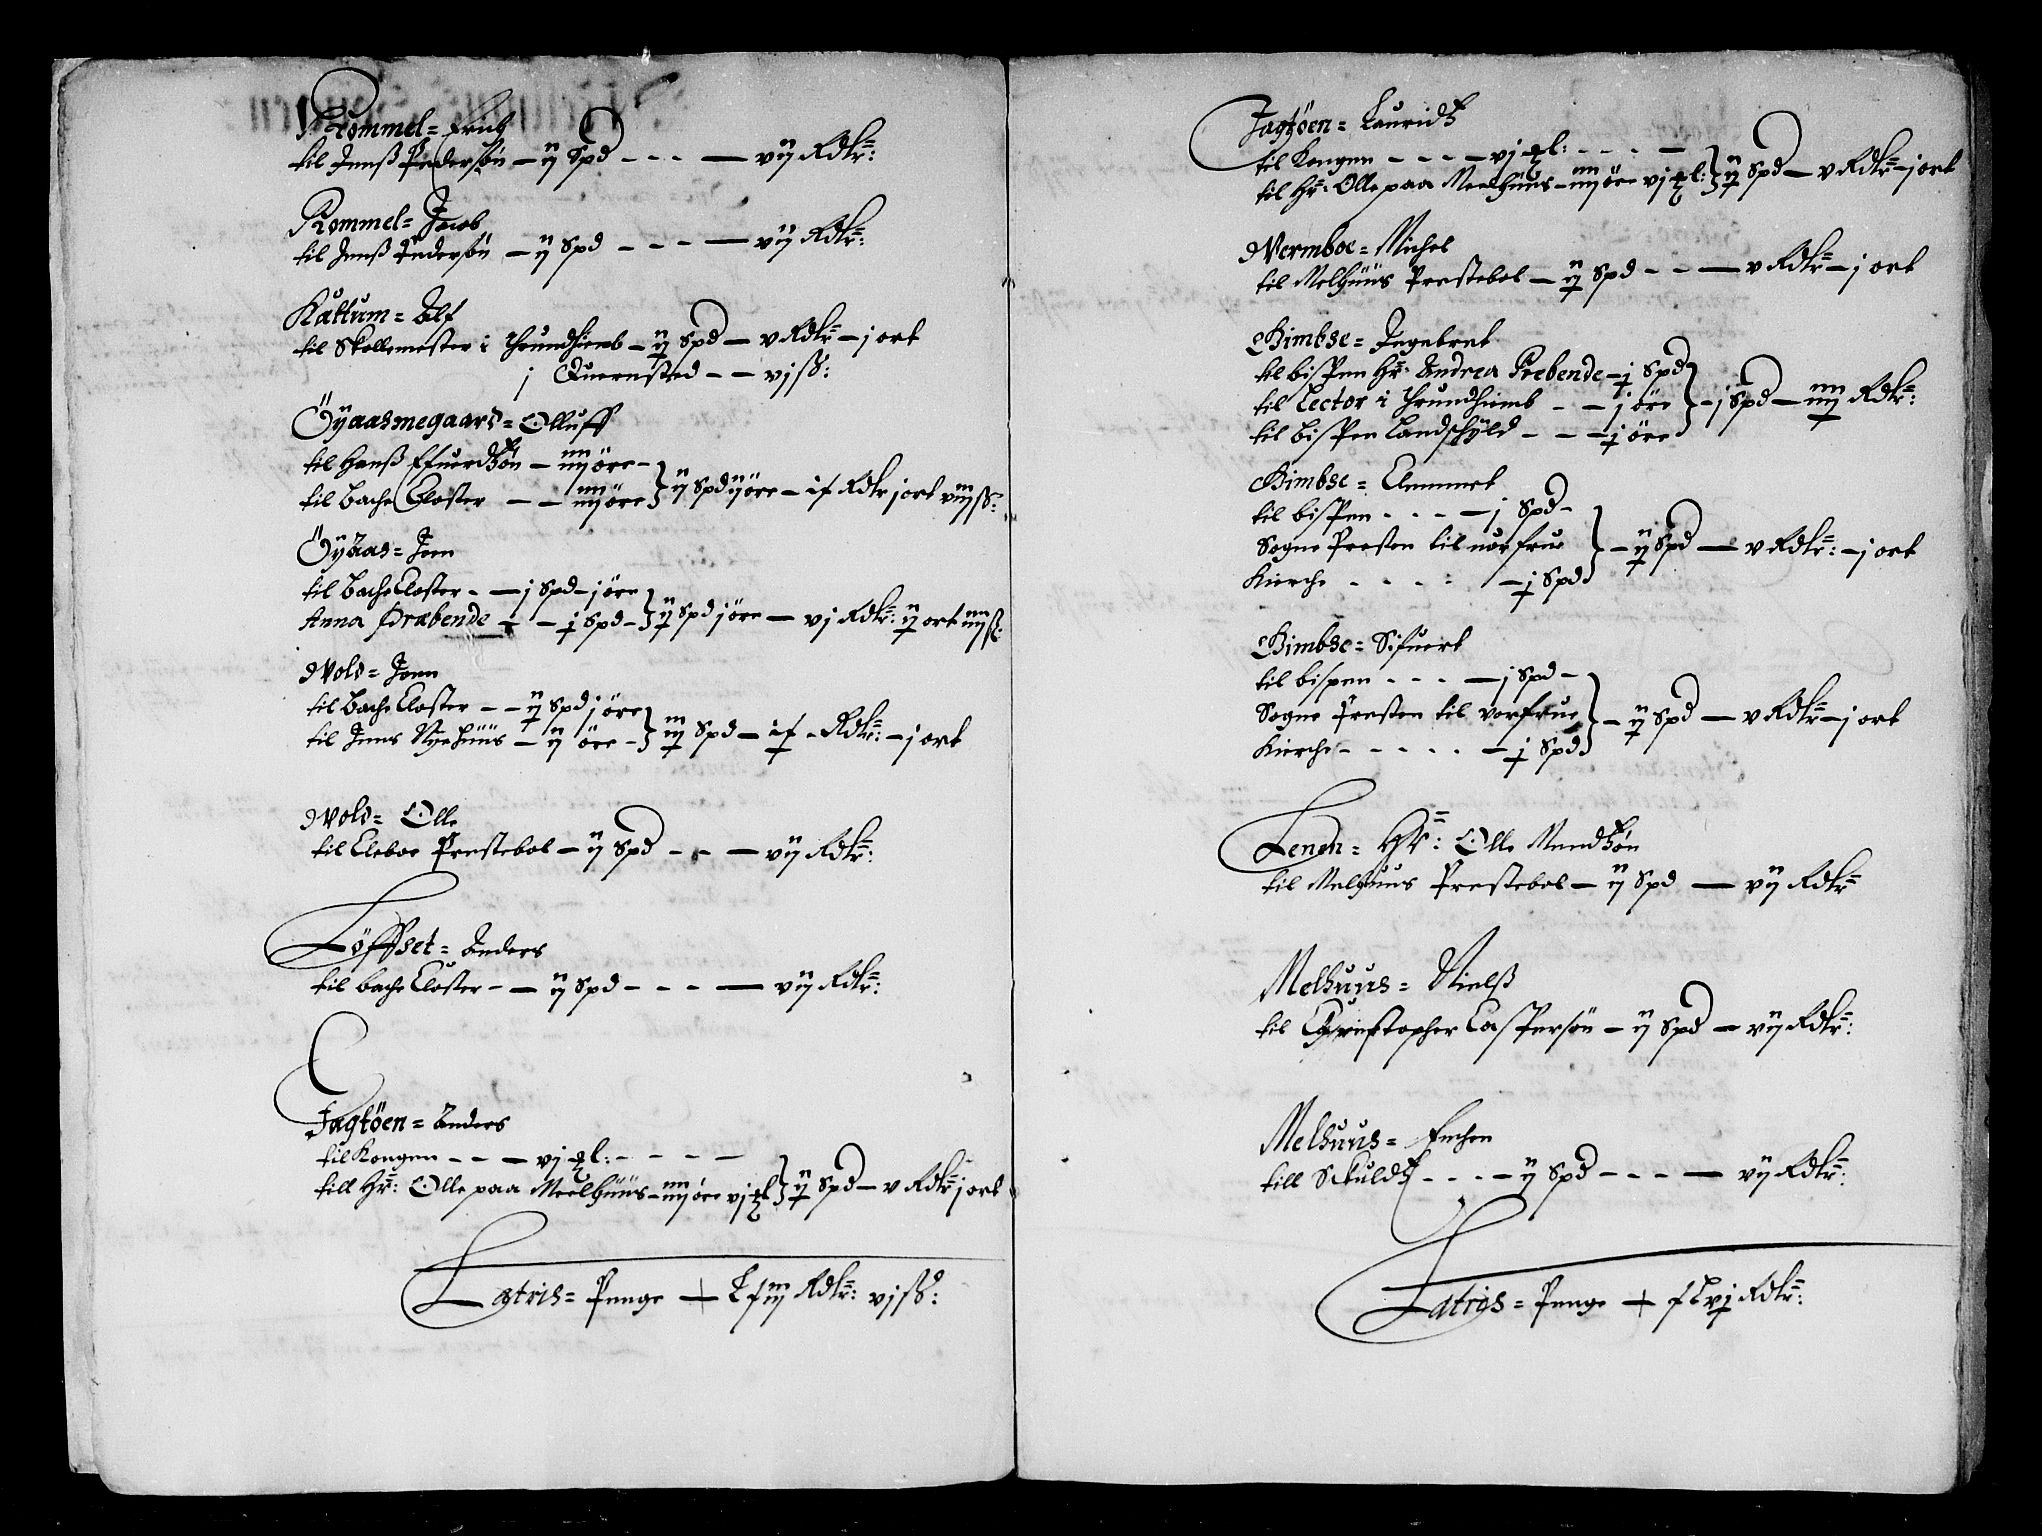 Rommel= Erich
til Jenß Pedersøn — ij Spd - - - — vij Rdlr:
Rommel= Jacob
til Jenß Pedersøn — ij Spd - - - — vij Rdlr:
Kattum= Alf
til Skollemester i Thrundhiemb — ij Spd — v Rdlr — j ort
j Quernsted - - vj ß:
Öyaasmegaard= Olluff
til Hanß Efuerdtzøn — iiij öre —
til Bache Closter — — iiij öre } ij Spd ij öre — ix Rdlr j ort viij ß:
Öyaas= Joen
til Bache Closter - — j Spd — j öre
Anna Præbende — — j Spd — } ij Spd j öre — vj Rdlr: ij ort iiij ß:
Wold= Joen
til Bache Closter — — ij Spd j öre
til Jens Nyehuus — ij öre — } iij Spd — ix — Rdlr: — j ort
Wold= Olle
til Eleboe Prestebol — ij Spd - - — vij Rdlr:
Löffset= Anders
til bache Closter - — ij Spd - - - — vij Rdlr:
Jagtöen= Anders
til Kongen - - - — vj ll: - - - —
till Hr: Olle paa Meelhuus — iiij öre vj ll } ij Spd — v Rdlr j ort
Latris= Penge — Lxiij Rdlr: vj ß:
Jagtöen= Lauridtz
til Kongen - - - — vj ll: - - - —
til Hr: Olle paa Meelhuus — iiij öre vj ll: } ij Spd — v Rdlr — j ort
Wermboe= Michel
til Melhuus Prestebol — ij Spd - - — v Rdlr — j ort
Gimbse= Ingebret
til bispen Hr: Andrea Prebende — j Spd
til Lector i Thrundhiemb - - — j öre } — j Spd — iiij Rdlr:
til bispen Landschyld - - — j öre
Gimbse= Clemmet
til bispen - - - — j Spd —
Sogne Presten til vor frue } — ij Spd — v Rdlr: — j ort
Kierche - - - - — j Spd
Gimbse= Sifuert
til bispen - - - — j Spd —
Sogne Presten til vor frue } — ij Spd — v Rdlr — j ort
Kierche - - - - - — j Spd
Lenen= Hr: Olle Mendtzøn
til Melhuus Prestebol — ij Spd — vij Rdlr
Melhuus= Nielß
til Christopher Caspersøn — ij Spd — vij Rdlr:
Melhuus= Enchen
till Schuldtz - - - — ij Spd - - - — vij Rdlr:
Latris= Penge — xLvj Rdlr: